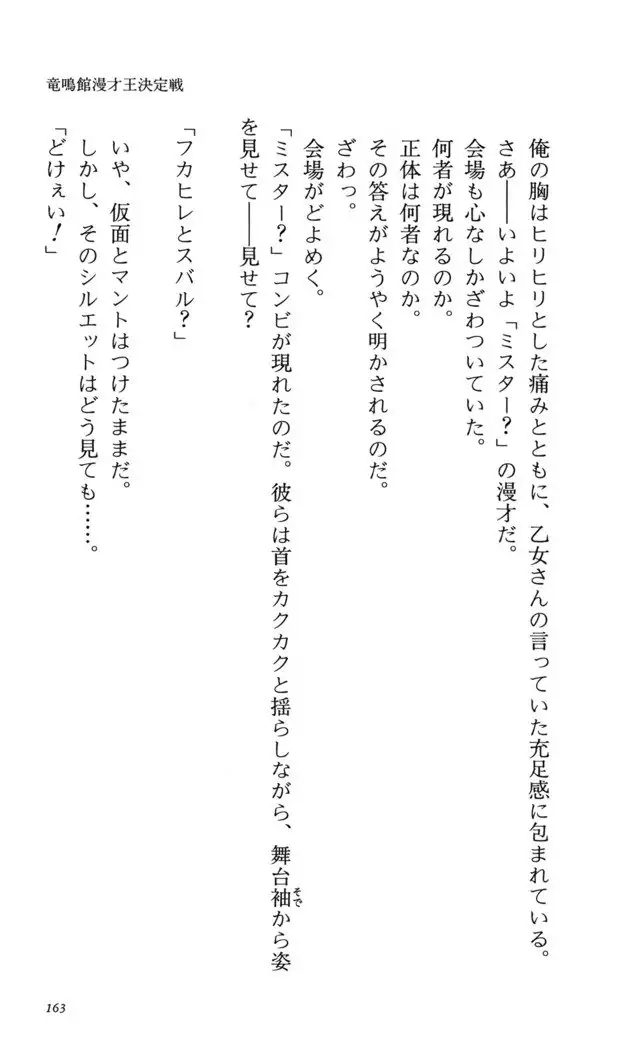 竜鳴館漫才王決定戦
俺の胸はヒリヒリとした痛みとともに、乙女さんの言っていた充足感に包まれている。
さあ――いよいよ「ミスター?」の漫才だ。
会場も心なしかざわついていた。
何者が現れるのか。
正体は何者なのか。
その答えがようやく明かされるのだ。
ざわっ。
会場がどよめく。
「ミスター?」コンビが現れたのだ。彼らは首をカクカクと揺らしながら、舞台袖そでから姿
を見せて――見せて?
「フカヒレとスバル?」
いや、仮面とマントはつけたままだ。
しかし、そのシルエットはどう見ても……。
「どけぇい!」
163